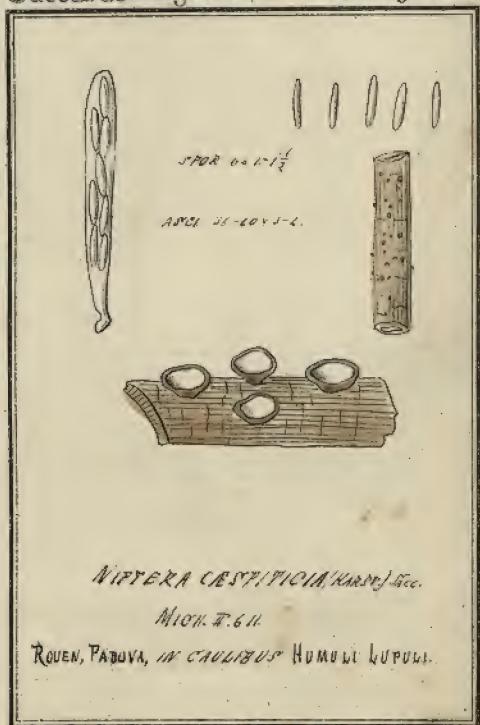 SPOR 6 × 1-1½
ASCI 36-40 × 5-6.
NIPTERA CÆSPITICIA, (KARST.) SACC.
MICH. II. 611.
ROUEN, PADOVA, IN CAULIBUS HUMULI LUPULI.